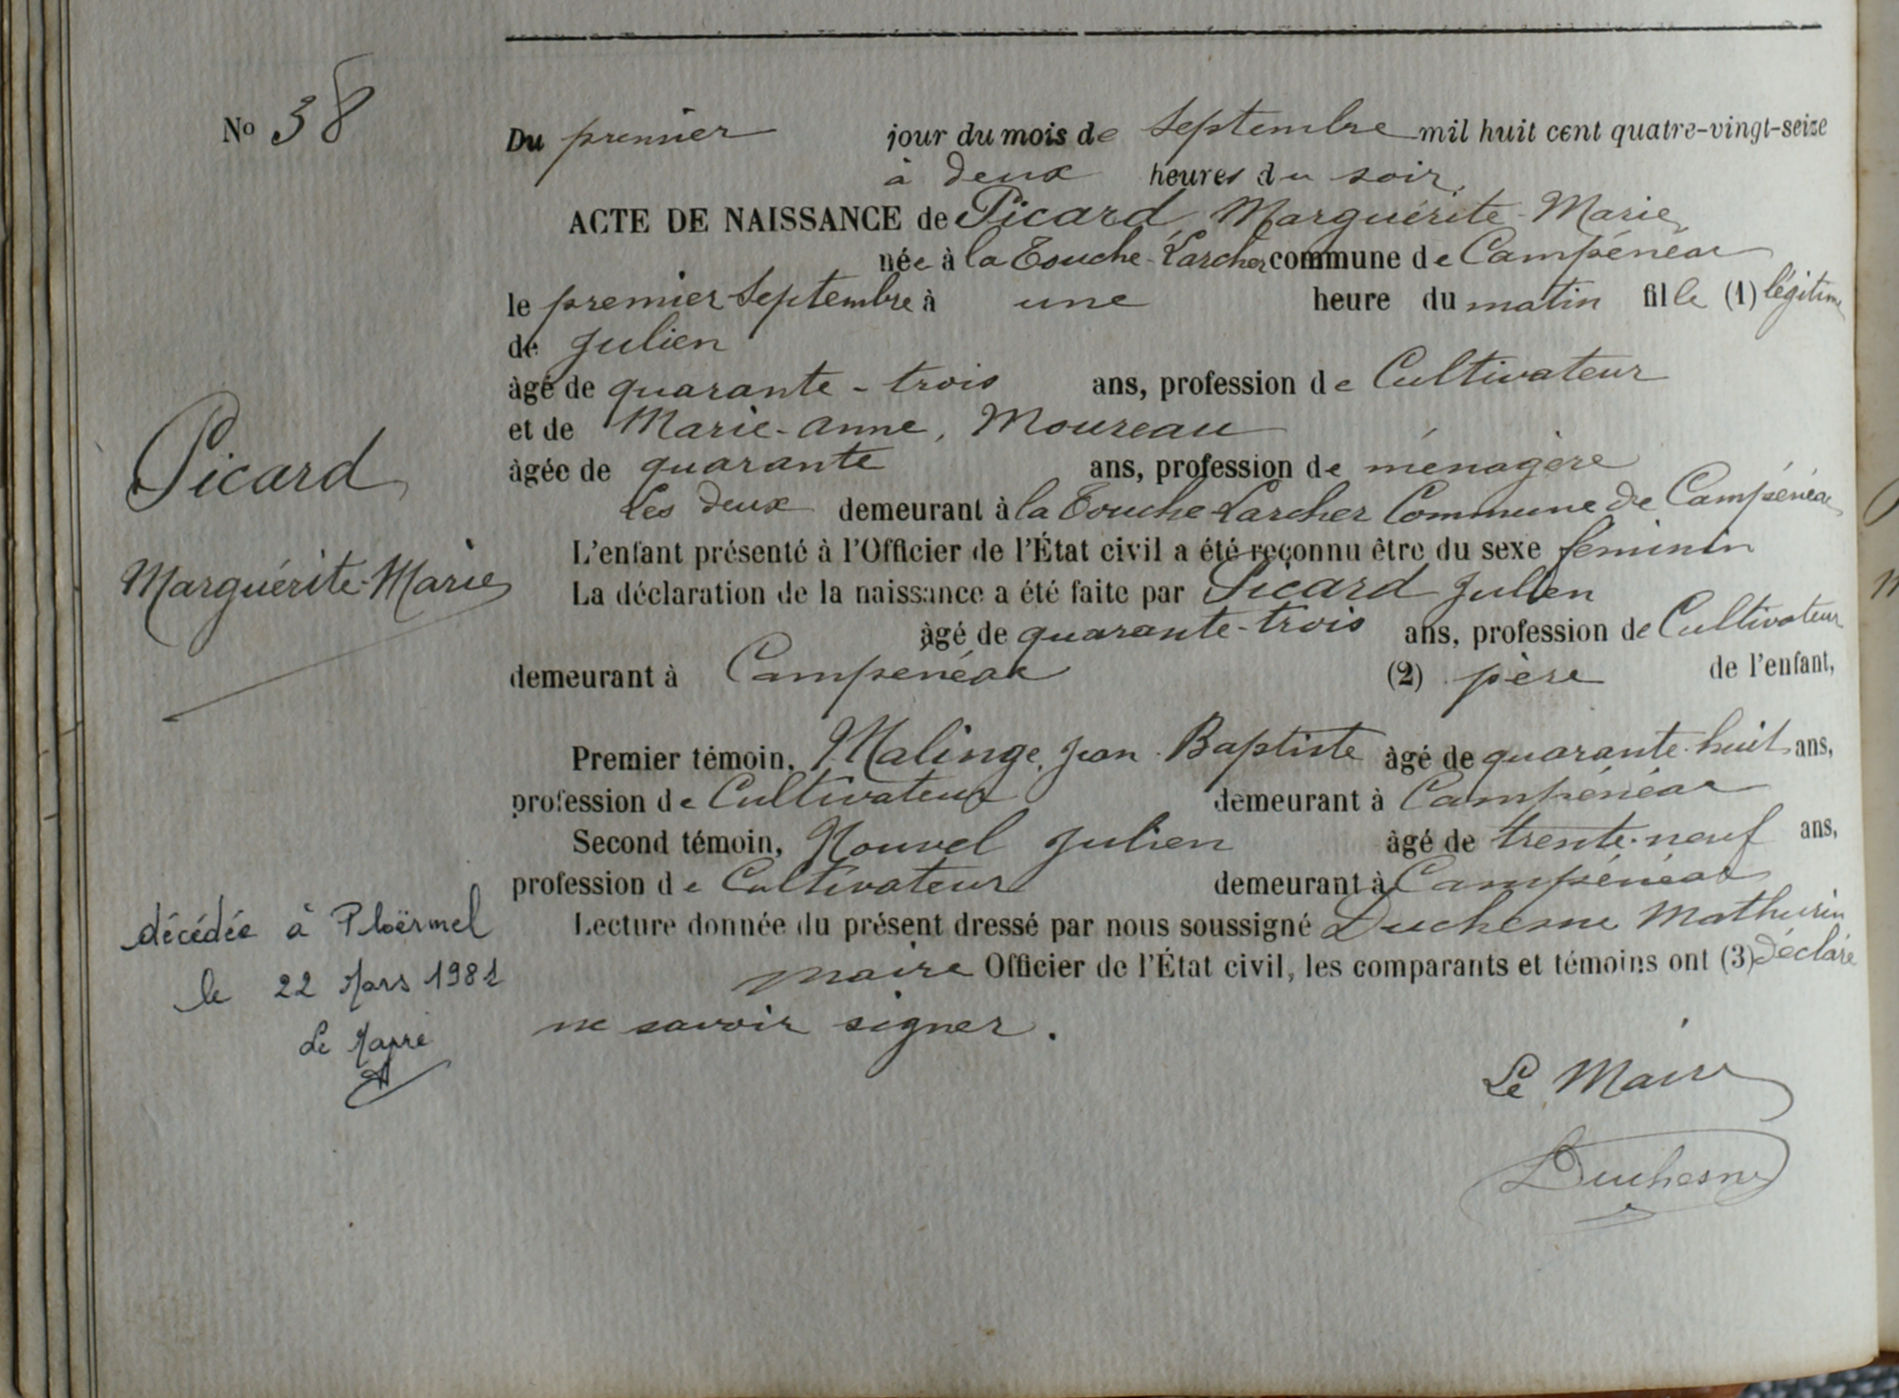 No 38
Du premier jour du mois de Septembre mil huit cent quatre-vingt-seize
à deux heures du soir.
ACTE DE NAISSANCE de Picard, Marguérite-Marie
née à la Touche-Larcher commune de Campénéac
le premier Septembre à une heure du matin fille (1) légitime
de Julien
âgé de quarante-trois ans, profession de Cultivateur
et de Marie-Anne, Moureau
âgée de quarante ans, profession de ménagère
Les deux demeurant à la Touche-Larcher Commune de Campénéac
L'enfant présenté à l'Officier de l'État civil a été reçonnu être du sexe feminin
La déclaration de la naissance a été faite par Picard Julien
âgé de quarante-trois ans, profession de Cultivateur
demeurant à Campenéac (2) père de l'enfant,
Premier témoin, Malinge, Jean-Baptiste âgé de quarante-huit ans,
profession de Cultivateur demeurant à Campénéac
Second témoin, Nouvel Julien âgé de trente-neuf ans,
profession de Cultivateur demeurant à Campénéac
Lecture donnée du présent dressé par nous soussigné Duchesne Mathurin
maire Officier de l'État civil, les comparants et témoins ont (3) déclaré
ne savoir signer.
Le Maire
Duchesne
Picard
Marguérite-Marie
décédée à Ploërmel
le 22 Mars 1981
Le Maire